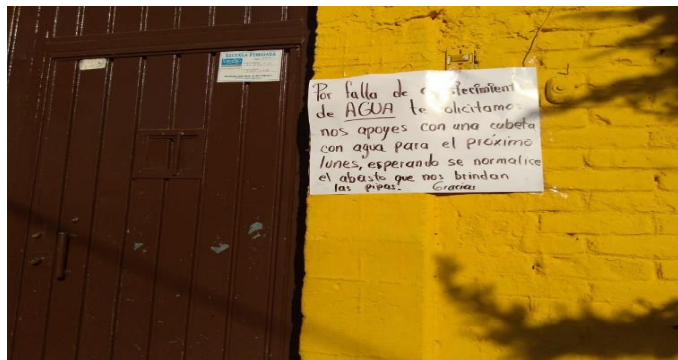 ESCUELA FUMIGADA
Por falla de
de AGUA te solicitamos
nos apoyes con una cubeta
con agua para el próximo
lunes, esperando se normalice
el abasto que nos brindan
las pipas. Gracias